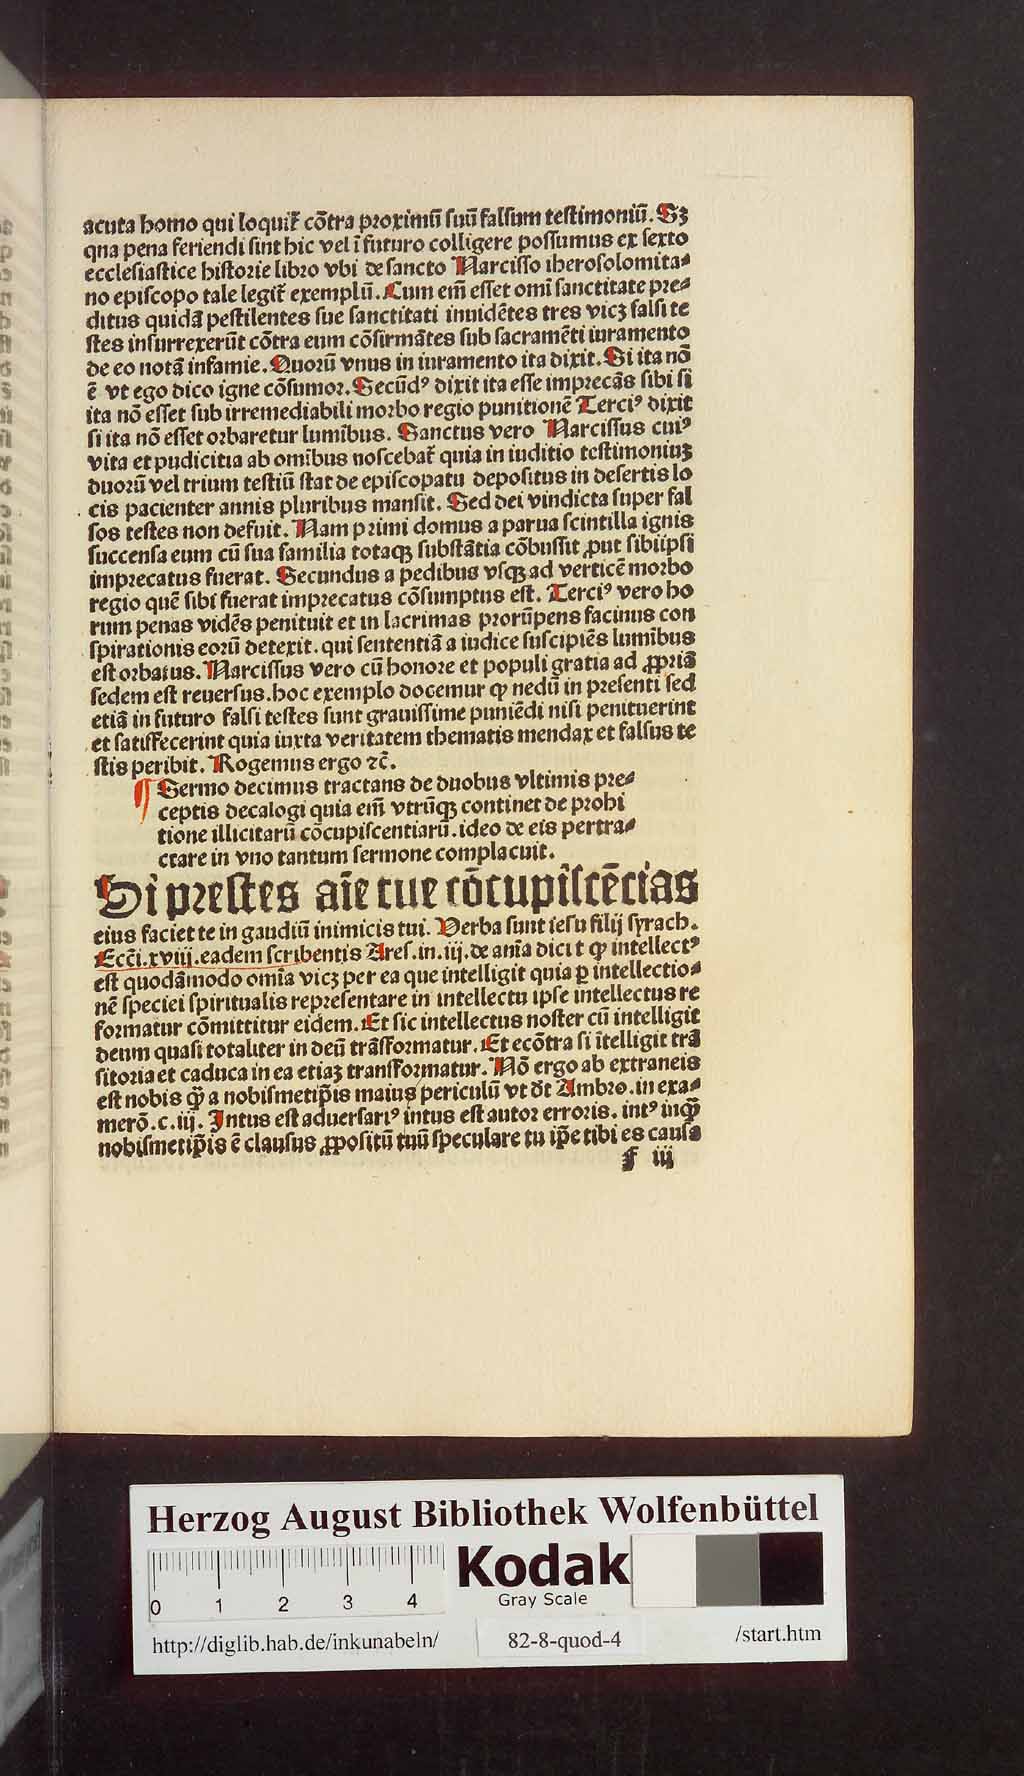 acuta homo qui loquit᷑ cōtra proximū suū falsum testimoniū. Sꝫ
qna pena feriendi sint hic vel ī futuro colligere possumus ex sexto
ecclesiastice historie libro vbi de sancto Narcisso iherosolomita⸗
no episcopo tale legit᷑ exemplū. Cum em̄ esset omī sanctitate pre⸗
ditus quidā pestilentes sue sanctitati inuidētes tres vicꝫ falsi te
stes insurrexerūt cōtra eum cōfirmātes sub sacramēti iuramento
de eo notā infamie. Quorū vnus in iuramento ita dixit. Si ita nō
ē vt ego dico igne cōsumor. Secūdꝰ dixit ita esse imprecās sibi si
ita nō esset sub irremediabili morbo regio punitionē Terciꝰ dixit
si ita nō esset orbaretur lumībus. Sanctus vero Narcissus cuiꝰ
vita et pudicitia ab omībus noscebat᷑ quia in iuditio testimoniuꝫ
duorū vel trium testiū stat de episcopatu depositus in desertis lo
cis pacienter annis pluribus mansit. Sed dei vindicta super fal
sos testes non defuit. Nam primi domus a parua scintilla ignis
succensa eum cū sua familia totaqꝫ substātia cōbussit ꝓut sibiipsi
imprecatus fuerat. Secundus a pedibus vsqꝫ ad verticē morbo
regio quē sibi fuerat imprecatus cōsumptus est. Terciꝰ vero ho
rum penas vidēs penituit et in lacrimas prorūpens facinus con
spirationis eorū detexit. qui sententiā a iudice suscipiēs lumībus
est orbatus. Narcissus vero cū honore et populi gratia ad ꝓpriā
sedem est reuersus. hoc exemplo docemur ꝙ nedū in presenti sed
etiā in futuro falsi testes sunt grauissime puniēdi nisi penituerint
et satisfecerint quia iuxta veritatem thematis mendax et falsus te
stis peribit. Rogemus ergo ⁊c̄.
¶ Sermo decimus tractans de duobus vltimis pre⸗
ceptis decalogi quia em̄ vtrūqꝫ continet de prohi
tione illicitarū cōcupiscentiarū. ideo de eis pertra⸗
ctare in vno tantum sermone complacuit.
Si prestes aīe tue cōcupīscēcias
eius faciet te in gaudiū inimicis tui. Verba sunt iesu filij syrach.
Ecc̄i. xviij. eadem scribentis Ares. in. iij. de anīa dicit ꝙ intellectꝰ
est quodāmodo omīa vicꝫ per ea que intelligit quia ꝑ intellectio⸗
nē speciei spiritualis representare in intellectu ipse intellectus re
formatur cōmittitur eidem. Et sic intellectus noster cū intelligit
deum quasi totaliter in deū trāsformatur. Et ecōtra si ītelligit trā
sitoria et caduca in ea etiaꝫ transformatur. Nō ergo ab extraneis
est nobis ꝙ̄ a nobismetip̄is maius periculū vt dt̄ Ambro. in exa⸗
merō. c. iij. Intus est aduersariꝰ intus est autor erroris. intꝰ inqꝫ̄
nobismetip̄is ē clausus ꝓpositū tuū speculare tu ip̄e tibi es causa
f iij
Herzog August Bibliothek Wolfenbüttel
Kodak
Gray Scale
0 1 2 3 4
http://diglib.hab.de/inkunabeln/ 82-8-quod-4 /start.htm